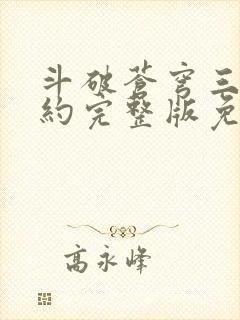 斗破蒼穹三
約完整版免
高永峰